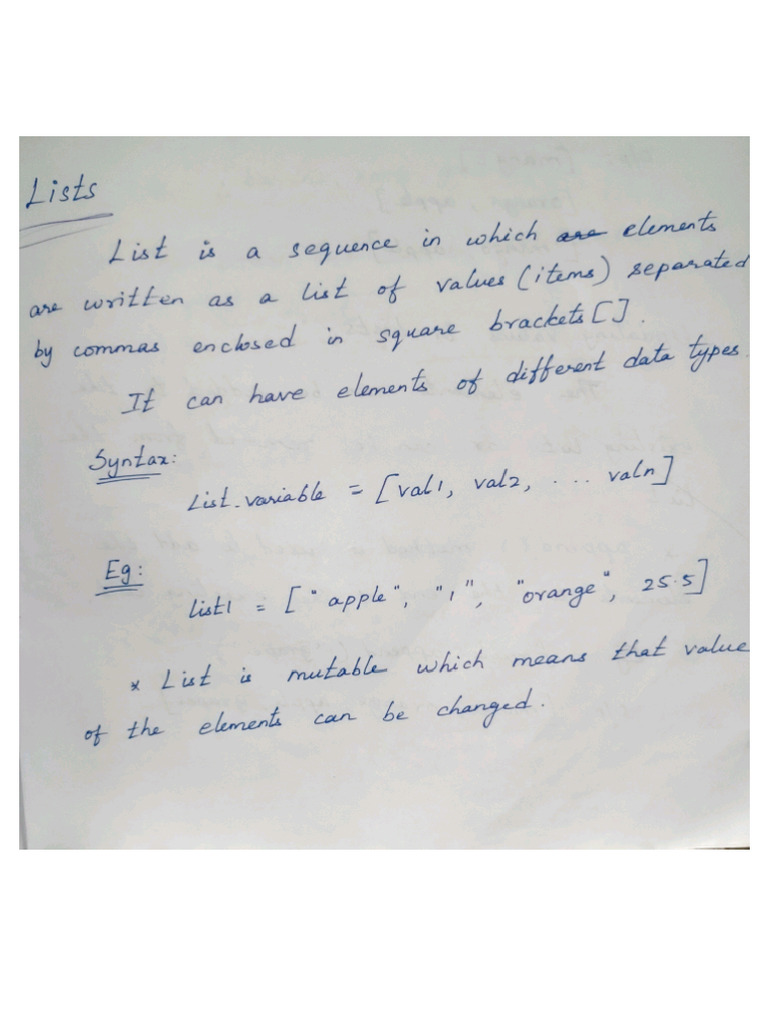 Lists
List is a sequence in which are elements
are written as a list of values (items) separated
by commas enclosed in square brackets [].
It can have elements of different data types.
Syntax:
List_variable = [val1, val2, ... valn]
Eg:
list1 = ["apple", "1", "orange", 25.5]
* List is mutable which means that value
of the elements can be changed.